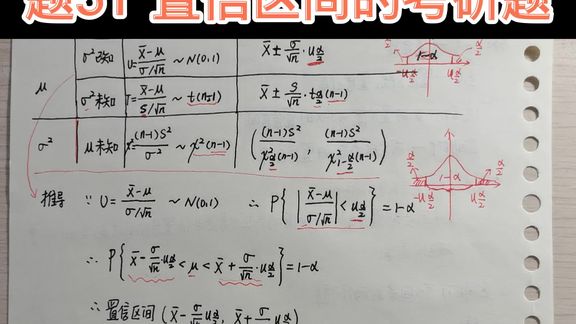 题51 置信区间的考研题
μ σ²已知 U=(X̄-μ)/(σ/√n) ~ N(0,1) X̄ ± σ/√n · u_{α/2}
σ²未知 T=(X̄-μ)/(S/√n) ~ t(n-1) X̄ ± S/√n · t_{α/2}(n-1)
σ² μ未知 χ²=(n-1)S²/σ² ~ χ²(n-1) ((n-1)S²/χ²_{α/2}(n-1), (n-1)S²/χ²_{1-α/2}(n-1))
α/2 1-α α/2
-u_{α/2} u_{α/2}
推导 ∵ U=(X̄-μ)/(σ/√n) ~ N(0,1) ∴ P{|(X̄-μ)/(σ/√n)|<u_{α/2}}=1-α
α/2 1-α α/2
-u_{α/2} u_{α/2}
∴ P{X̄-σ/√n·u_{α/2}<μ<X̄+σ/√n·u_{α/2}}=1-α
∴ 置信区间(X̄-σ/√n u_{α/2}, X̄+σ/√n u_{α/2})